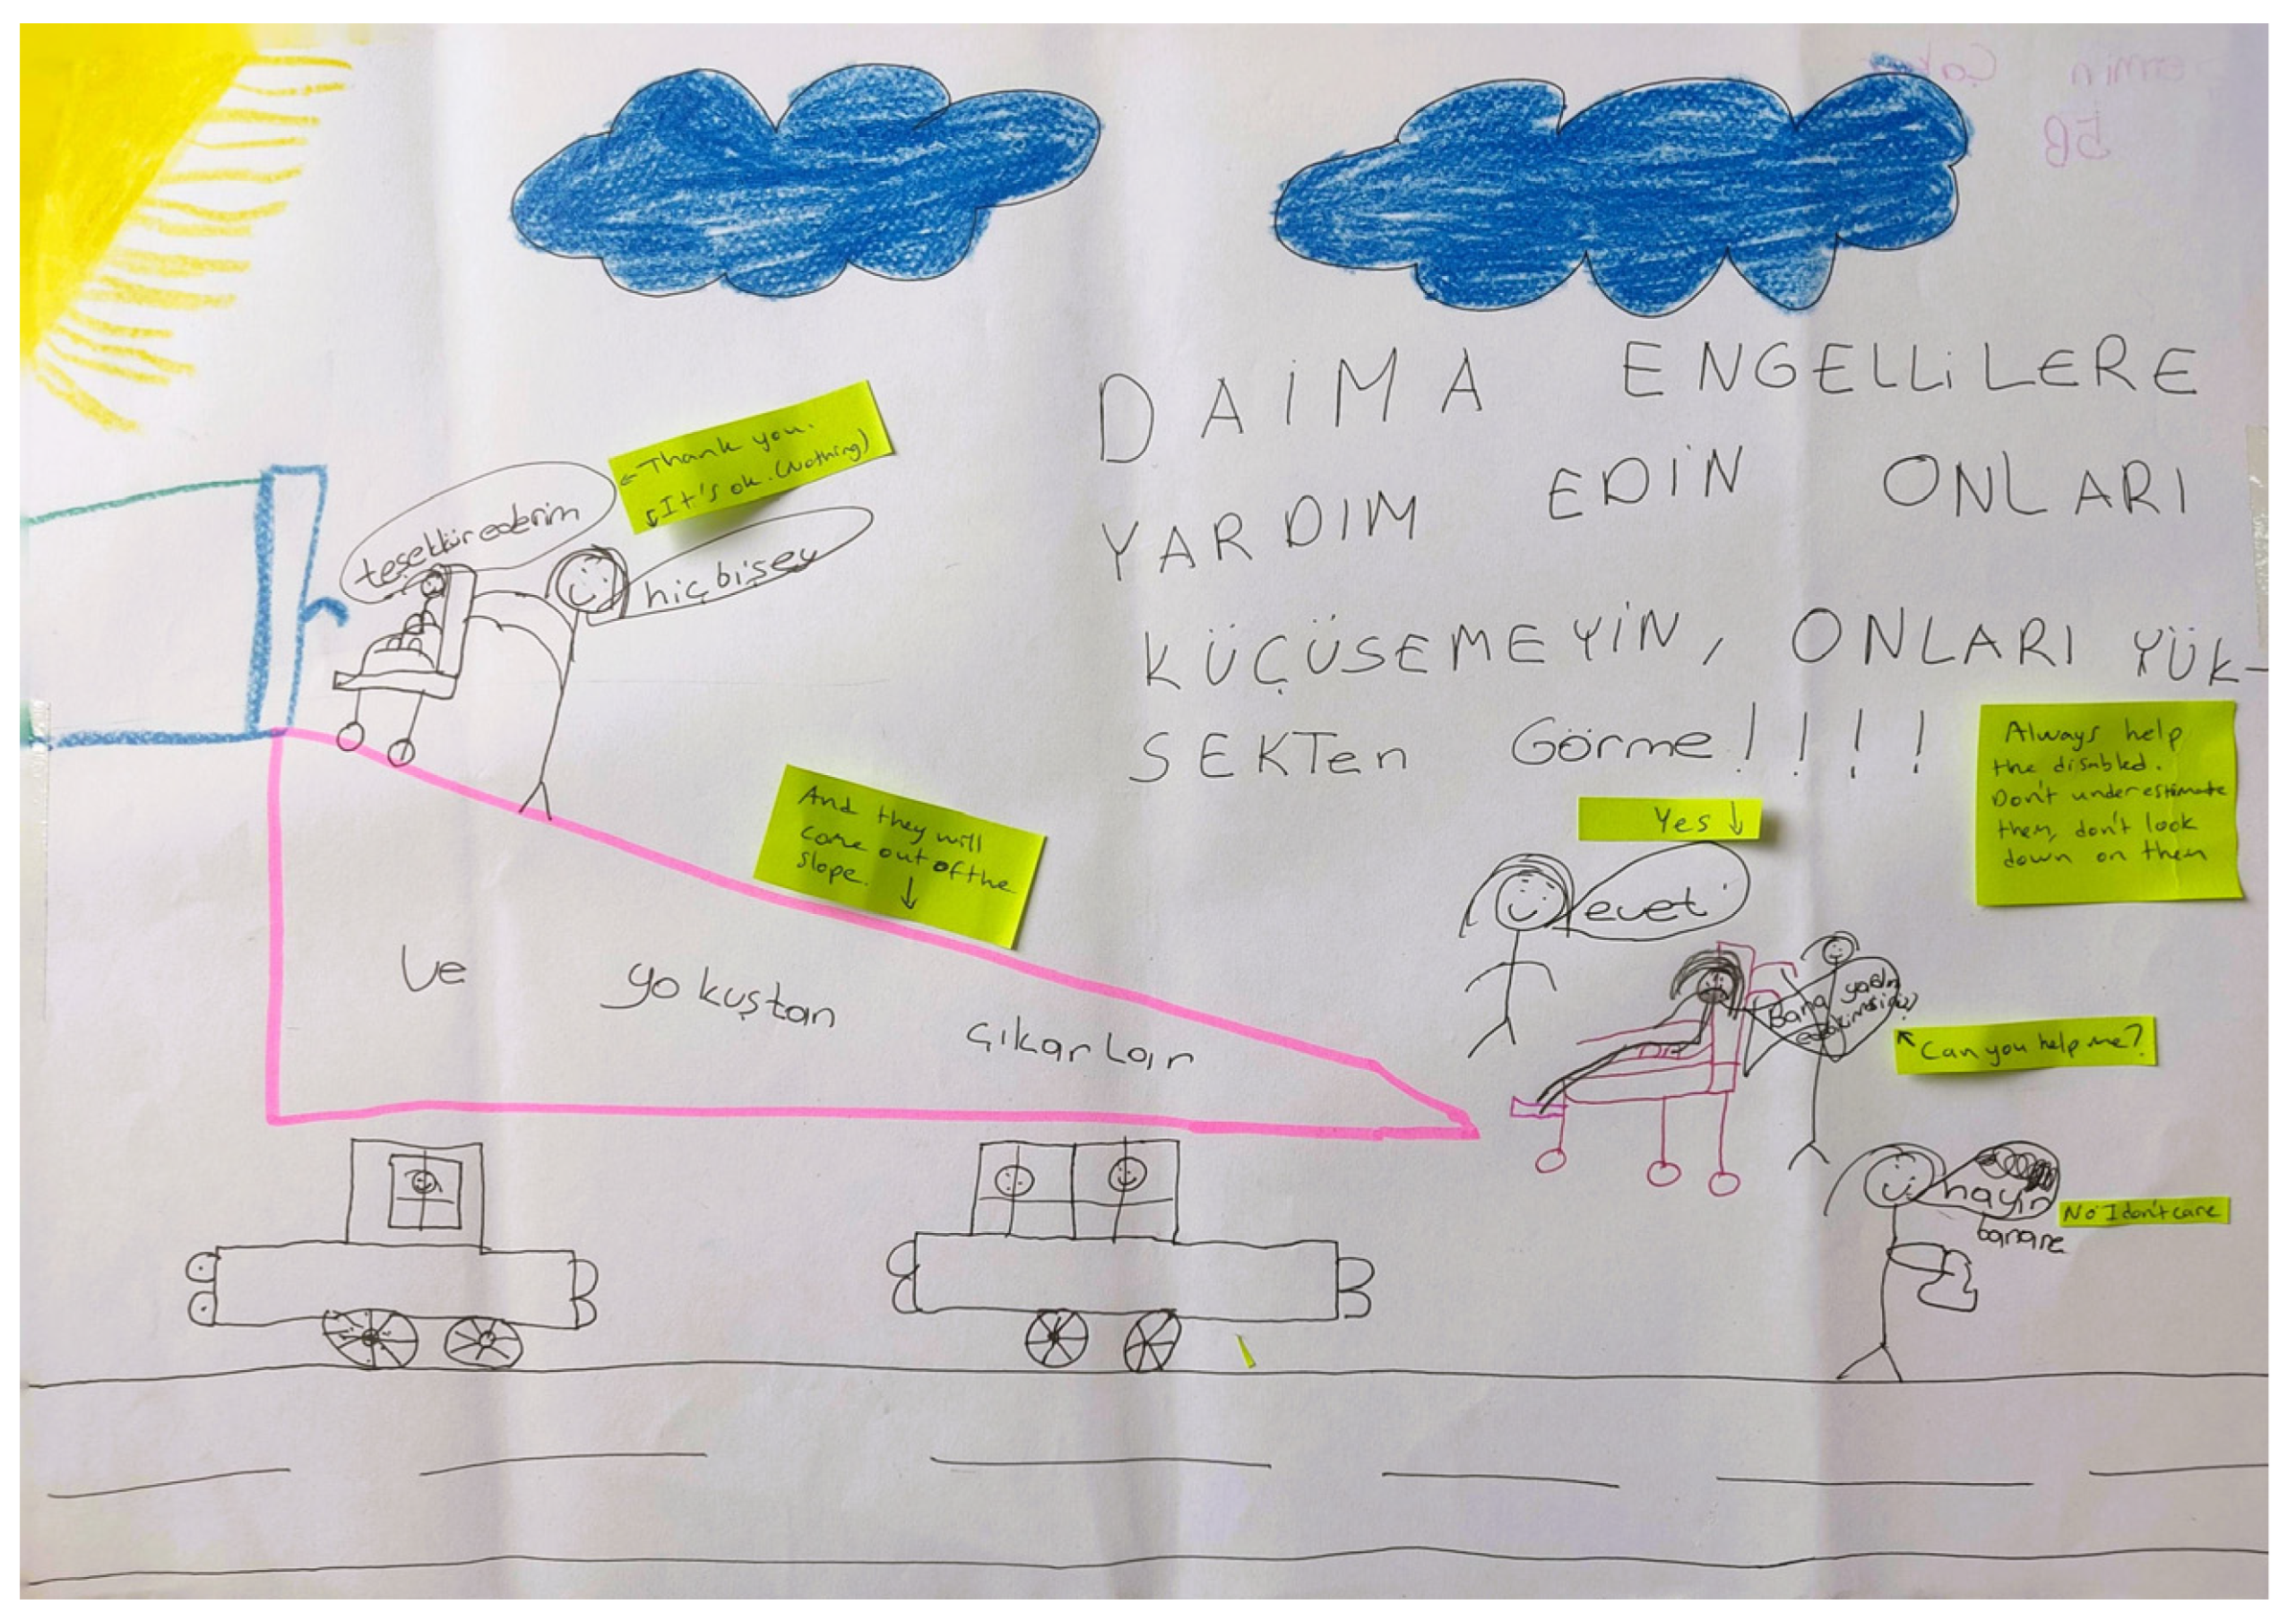 DAİMA ENGELLİLERE
YARDIM EDİN ONLARI
KÜÇÜSEMEYİN, ONLARI YÜK-
SEKTen Görme!!!!
←Thank you.
↙It's ok. (Nothing)
teşekkür ederim
hiç bişey
And they will
come out of the
slope.
↓
Ve yokuştan çıkarlar
Always help
the disabled.
Don't underestimate
them, don't look
down on them
Yes ↓
evet
Bana yardım
edebilirmisiniz?
↖ Can you help me?
hayır
banane
No I don't care
5B